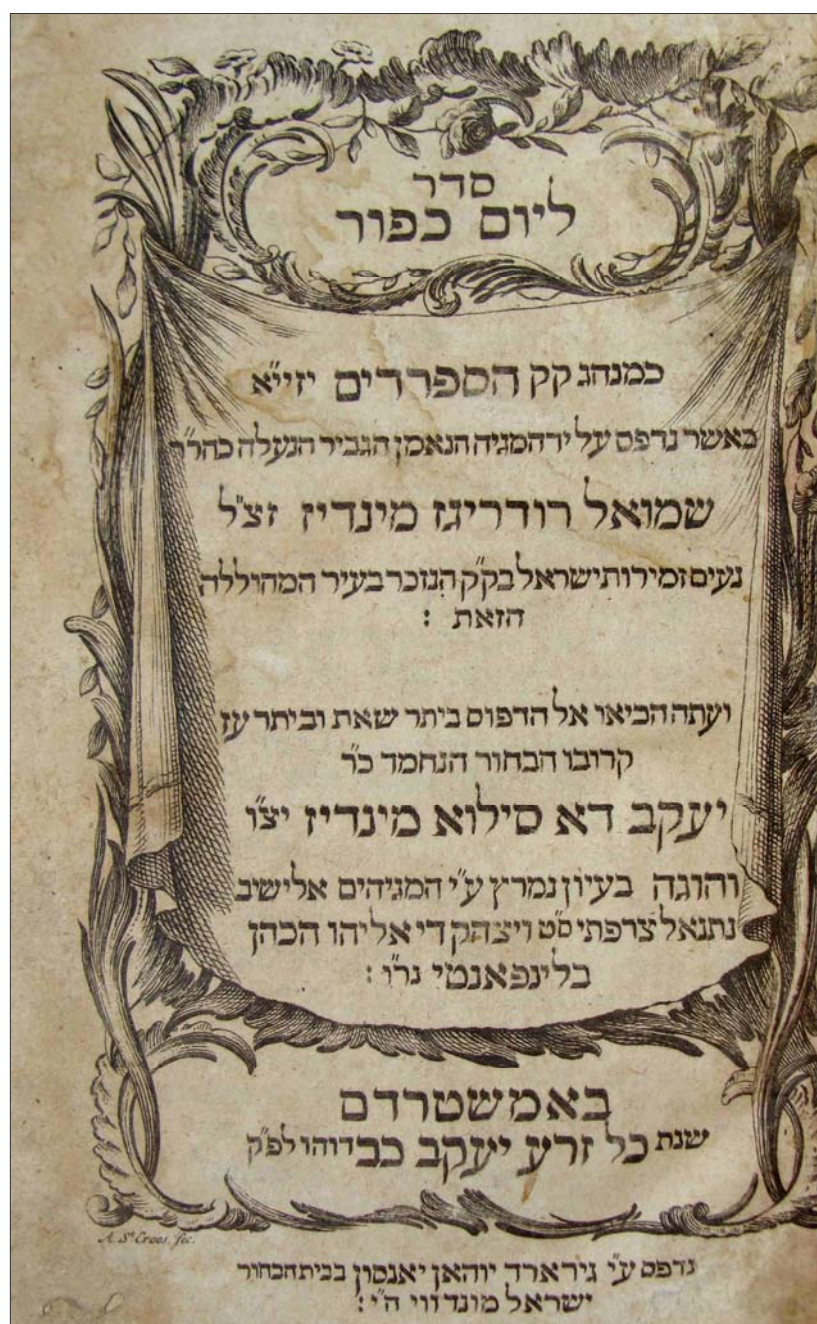 סדר
ליום כפור
כמנהג קק הספרדים יזיי"א
כאשר נדפס על יד המגיה הנאמן הגביר הנעלה כהר"ר
שמואל רודריגז מינדיז זצ"ל
נעים זמירות ישראל בק"ק הנזכר בעיר המהוללה
הזאת :
ועתה הביאו אל הדפוס ביתר שאת וביתר עז
קרובו הבחור הנחמד כ"ר
יעקב דא סילוא מינדיז יצ"ו
והוגה בעיון נמרץ ע"י המגיהים אלישיב
נתנאל צרפתי ס"ט ויצהק די אליהו הכהן
בלינפאנטי נר"ו :
באמשטרדם
שנת כל זרע יעקב כבדוהו לפ"ק
A. S.t Croos. fec.
נדפס ע"י גירארד יוהאן יאנסון בבית הבחור
ישראל מונדווי ה"י :